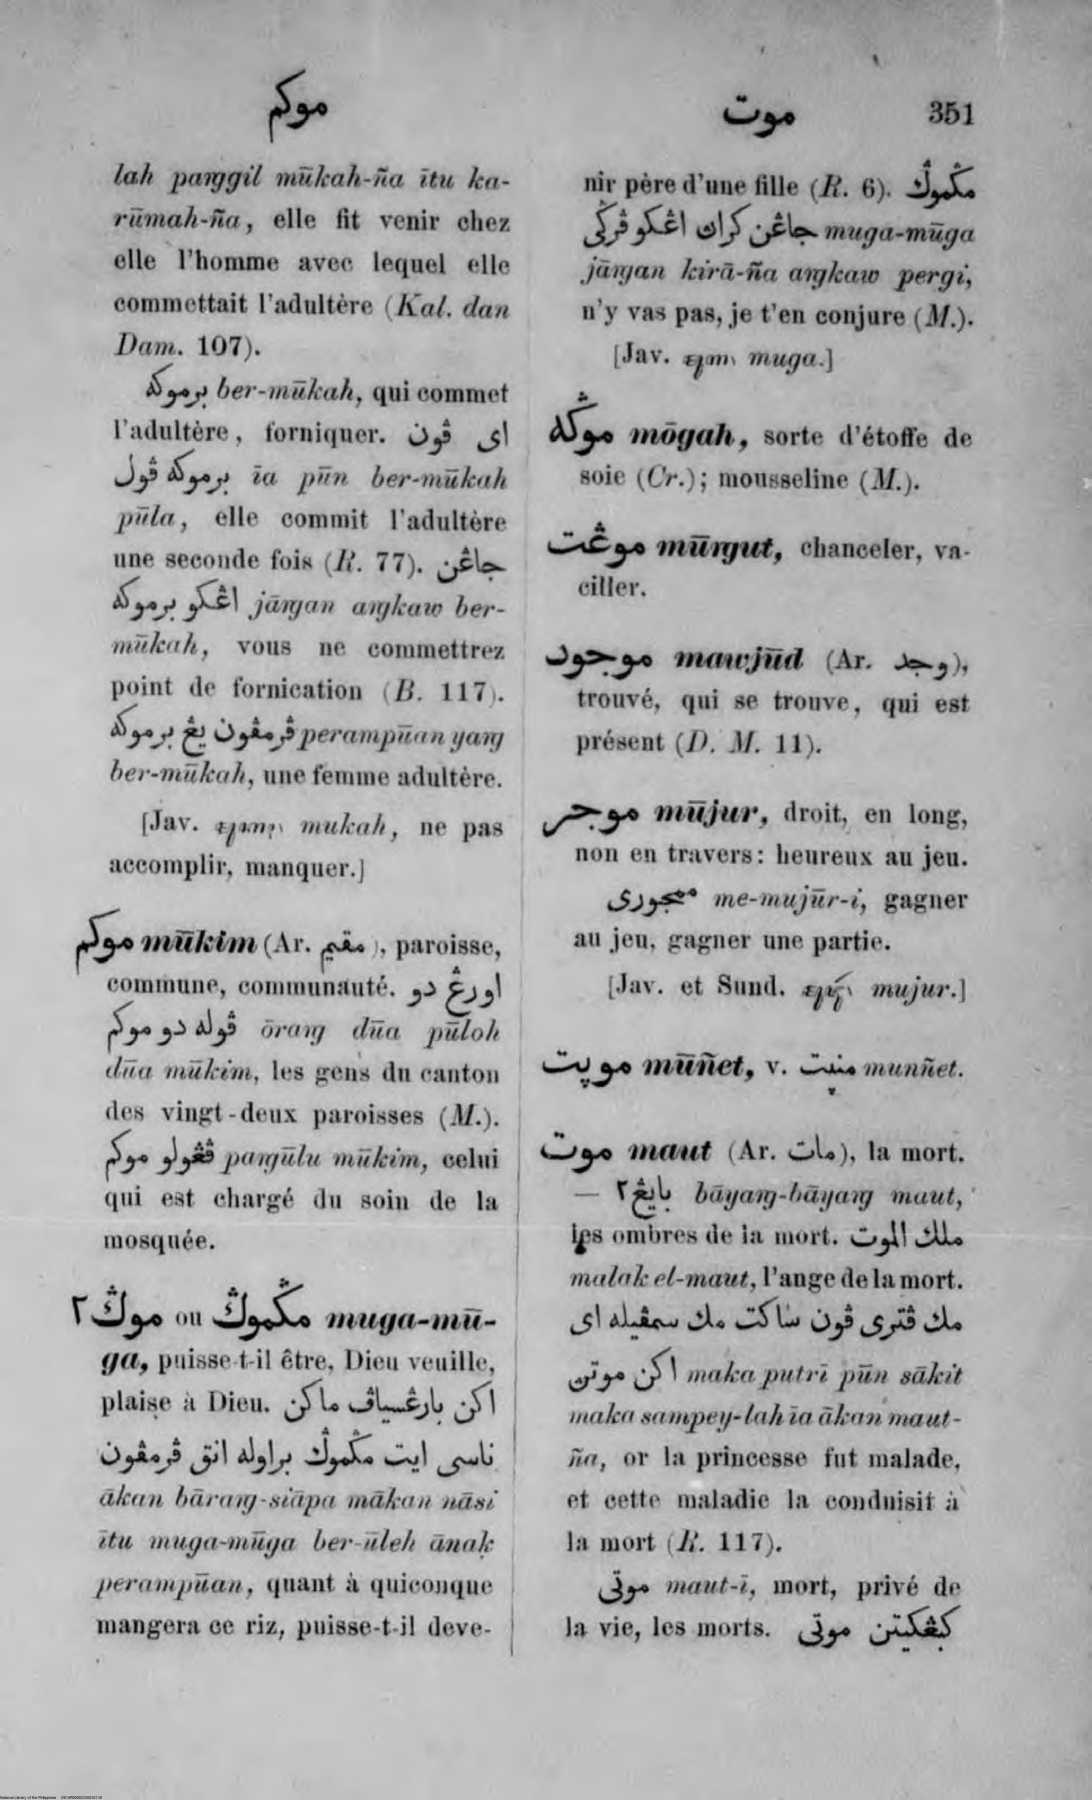 موكم
موت 351
lah parggil mūkah-ña ītu ka-
rūmah-ña, elle fit venir chez
elle l'homme avec lequel elle
commettait l'adultère (Kal. dan
Dam. 107).
برموكه ber-mūkah, qui commet
l'adultère, forniquer. اى ڤون
برموكه ڤول īa pūn ber-mūkah
pūla, elle commit l'adultère
une seconde fois (R. 77). جاڠن
اڠكو برموكه jārgan argkaw ber-
mūkah, vous ne commettrez
point de fornication (B. 117).
ڤرمڤون يڠ برموكه perampūan yarg
ber-mūkah, une femme adultère.
[Jav. mukah, ne pas
accomplir, manquer.]
موكم mūkim (Ar. مقيم), paroisse,
commune, communauté. اورڠ دو
ڤوله دو موكم ōrarg dūa pūloh
dūa mūkim, les gens du canton
des vingt-deux paroisses (M.).
ڤڠولو موكم pargūlu mūkim, celui
qui est chargé du soin de la
mosquée.
موݢ٢ ou مݢموݢ muga-mū-
ga, puisse-t-il être, Dieu veuille,
plaise à Dieu. اكن بارڠسياڤ ماكن
ناسى ايت مݢموݢ براوله انق ڤرمڤون
ākan bārarg-siāpa mākan nāsi
ītu muga-mūga ber-ūleh ānaḳ
perampūan, quant à quiconque
mangera ce riz, puisse-t-il deve-
nir père d'une fille (R. 6). مݢموݢ
جاڠن كراڽ اڠكو ڤرݢى muga-mūga
jārgan kirā-ña argkaw pergi,
n'y vas pas, je t'en conjure (M.).
[Jav. muga.]
موݢه mōgah, sorte d'étoffe de
soie (Cr.); mousseline (M.).
موڠت mūrgut, chanceler, va-
ciller.
موجود mawjūd (Ar. وجد),
trouvé, qui se trouve, qui est
présent (D. M. 11).
موجر mūjur, droit, en long,
non en travers: heureux au jeu.
ممجورى me-mujūr-i, gagner
au jeu, gagner une partie.
[Jav. et Sund. mujur.]
موڽت mūñet, v. منڽت munñet.
موت maut (Ar. مات), la mort.
— بايڠ٢ bāyarg-bāyarg maut,
les ombres de la mort. ملك الموت
malak el-maut, l'ange de la mort.
مك ڤترى ڤون ساكت مك سمڤيله اى
اكن موتڽ maka putrī pūn sākit
maka sampey-lah īa ākan maut-
ña, or la princesse fut malade,
et cette maladie la conduisit à
la mort (R. 117).
موتى maut-ī, mort, privé de
la vie, les morts. كبڠكيتن موتى